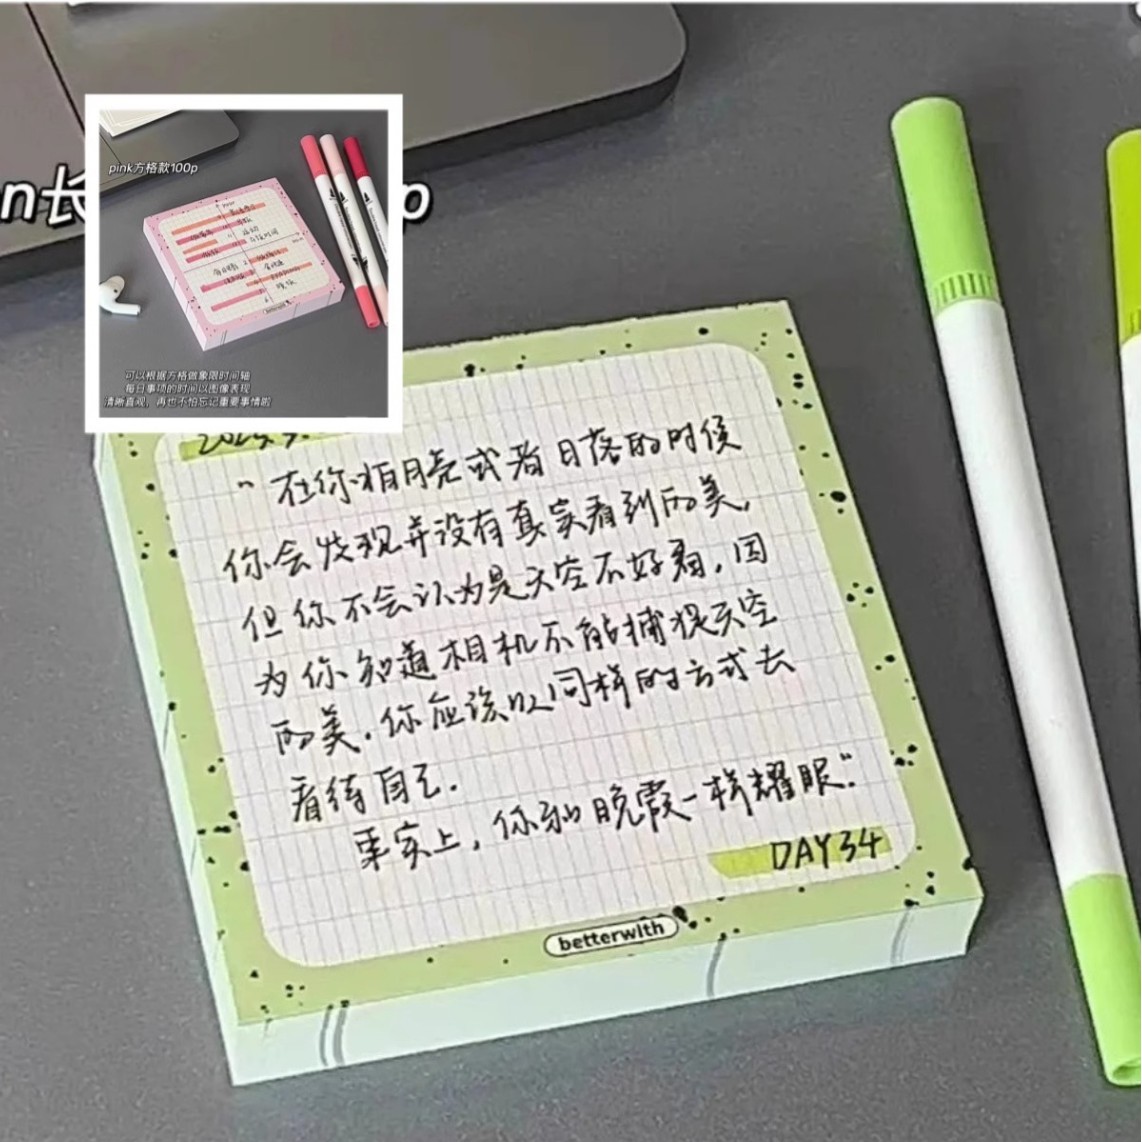 n长
p
pink方格款100p
可以根据方格做象限时间轴
每日事项的时间以图像表现
清晰直观，再也不怕忘记重要事情啦
“在你拍月亮或者日落的时候
你会发现并没有真实看到的美，
但你不会认为是天空不好看，因
为你知道相机不能捕捉天空
的美．你应该以同样的方式去
看待自己．
事实上，你和晚霞一样耀眼．”
DAY34
betterwith